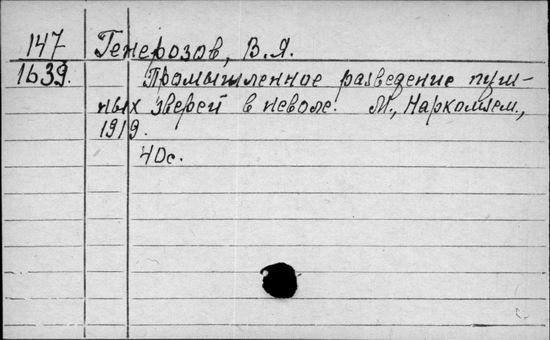 147 Генерозов, В.Я.
1639. Промышленное разведение пуш-
ных зверей в неволе. М., Наркомзем.,
1919.
40с.